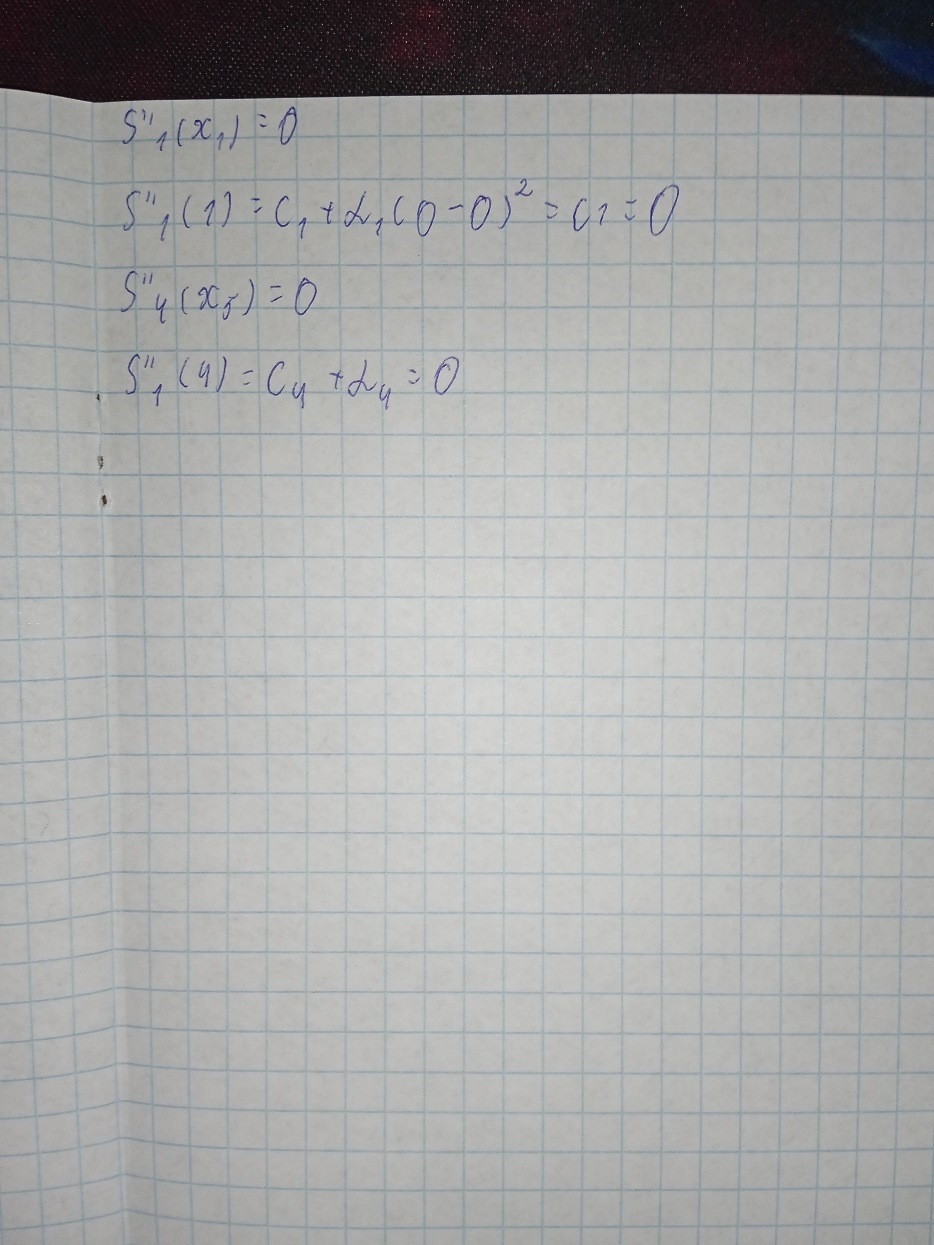 S''₁(x₁) = 0
S''₁(1) = C₁ + α₁(0-0)² = C1 = 0
S''₄(x₅) = 0
S''₁(4) = C₄ + α₄ = 0